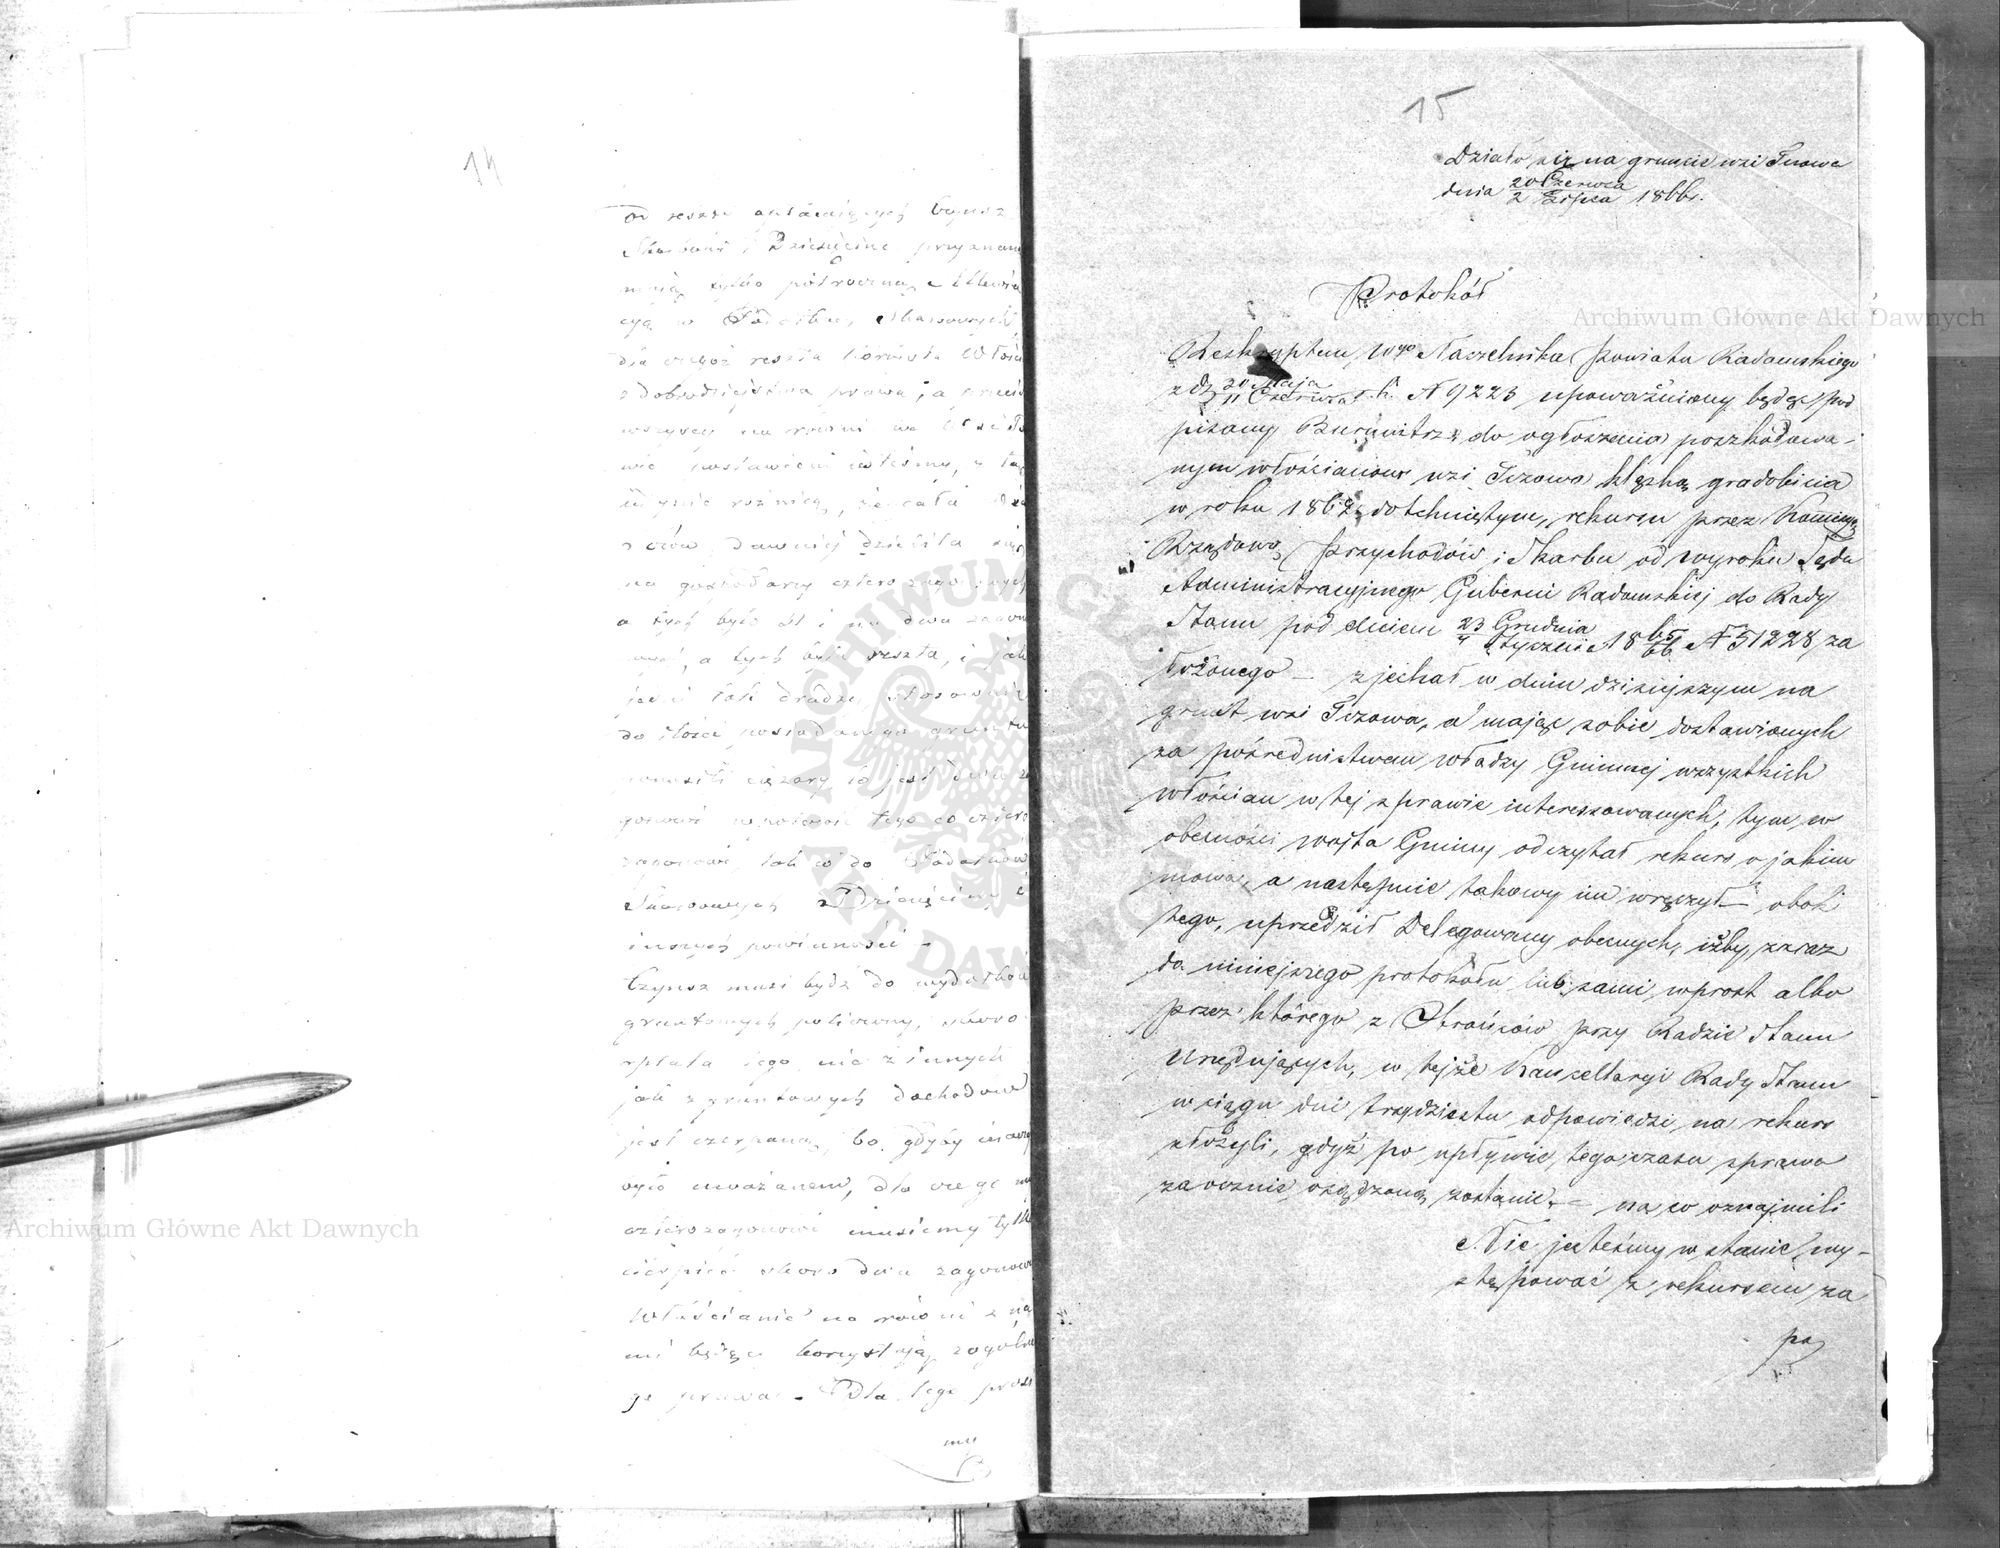 14
od reszty
Skarbowi i Dziesięcinę przyznan
mają tylko półroczną Allewia
cyą w Podatku Skarbowych
dla czegoż reszta korzysta Włości
z dobrodziejstwa prawa, a przecie
wszyscy na równi
wie postawieni jesteśmy, z tą
jedynie różnicą, że cała
dawniej dzieliła się
na gospodarzy cztero zagonowych
a tych było 21 i na dwu zagon
a tych było reszta, i jak
jedni tak drudzy stosownie
do ilości posiadanego gruntu
ponosili ciężary to jest dwu za
gonowi w połowie tego co cztero
zagonowi tak co do Podatków
Skarbowych Dziesięciny i
innych powinności –
Czynsz musi bydź do wydatków
gruntowych policzony, skoro
spłata jego nie z innych
jak z gruntowych dochodów
jest czerpaną, bo gdyby inaczej
było uważanem, dla czego my
czterozagonowi musiemy tylko
cierpieć skoro dwu zagonowi
Włościanie na równi z na
mi będąc korzystają z ogólne
go prawa – Dla tego pros
my
15
Działo się na gruncie wsi Tczowa
dnia 20 Czerwca / 2 Lipca 1866 r.
Protokół
Reskryptem Wgo Naczelnika Powiatu Radomskiego
z d. 20 Maja / 11 Czerwca r. b. N 9223 upoważniony będąc pod
pisany Burmistrz do ogłoszenia poszkodowa-
nym włościanom wsi Tczowa klęską gradobicia
w roku 1862 dotchniętym, rekursu przez Kommissyę
Rządową Przychodów i Skarbu od wyroku Sądu
Administracyjnego Gubernii Radomskiej do Rady
Stanu pod dniem 23 Grudnia / 4 Stycznia 1865/66 N 51228 za
łożonego – zjechał w dniu dzisiejszym na
grunt wsi Tczowa, a mając sobie dostawionych
za pośrednistwem władzy Gminnej wszystkich
włościan w tej sprawie interessowanych, tym w
obecności wójta Gminy odczytał rekurs o jakim
mowa, a następnie takowy im wręczył – obok
tego, uprzedził Delegowany obecnych, iżby zaraz
do niniejszego protokółu lub sami wprost albo
przez którego z Obrońców przy Radzie Stanu
Urzędujących, w tejże Kancellaryi Rady Stanu
w ciągu dni trzydziestu odpowiedzi na rekurs
złożyli, gdyż po upływie tego czasu sprawa
zaocznie osądzoną zostanie – na co oznajmili
Nie jesteśmy w stanie wy-
stępować z rekursem za
po
Archiwum Główne Akt Dawnych
Archiwum Główne Akt Dawnych
ARCHIWUM GŁÓWNE AKT DAWNYCH